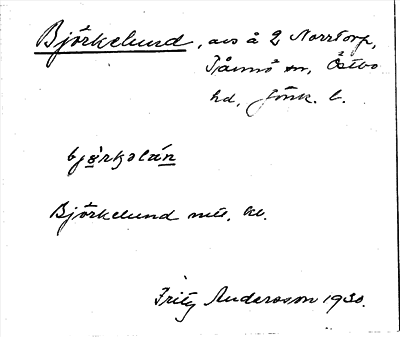 Björkelund, avs å 2 Norrtorp,
Tånnö sn, Östbo
hd, Jönk. l.
björkəlún
Björkelund mtl. kl.
Fritz Andersson 1930.